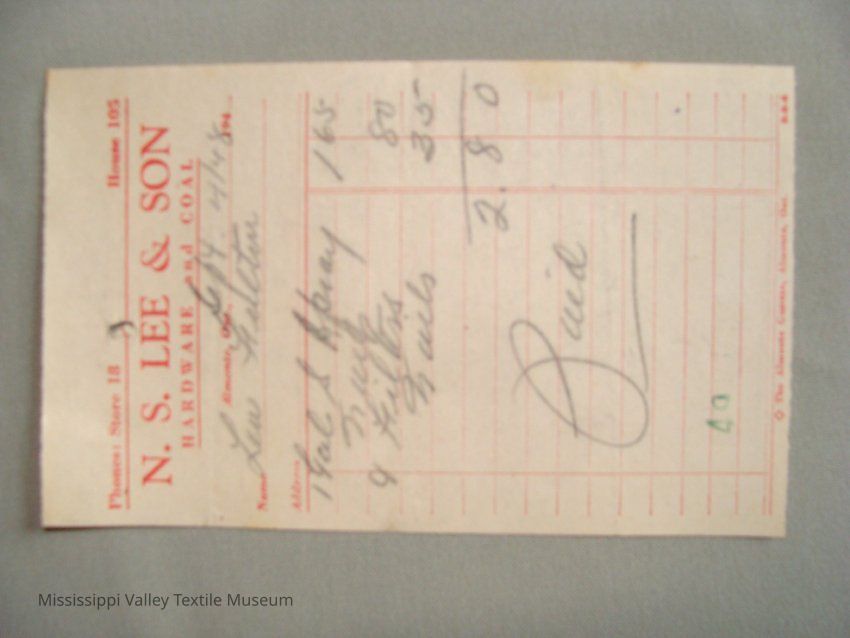 Phones: Store 18 House 105
N. S. LEE & SON
HARDWARE and COAL
Almonte, Ont. Sept 4/48 194
Name Lew Fulton
Address
1 Gal S Spray 165
9 Filters 80
Nails 35
2.80
Paid
40
© The Almonte Gazette, Almonte, Ont.
Mississippi Valley Textile Museum